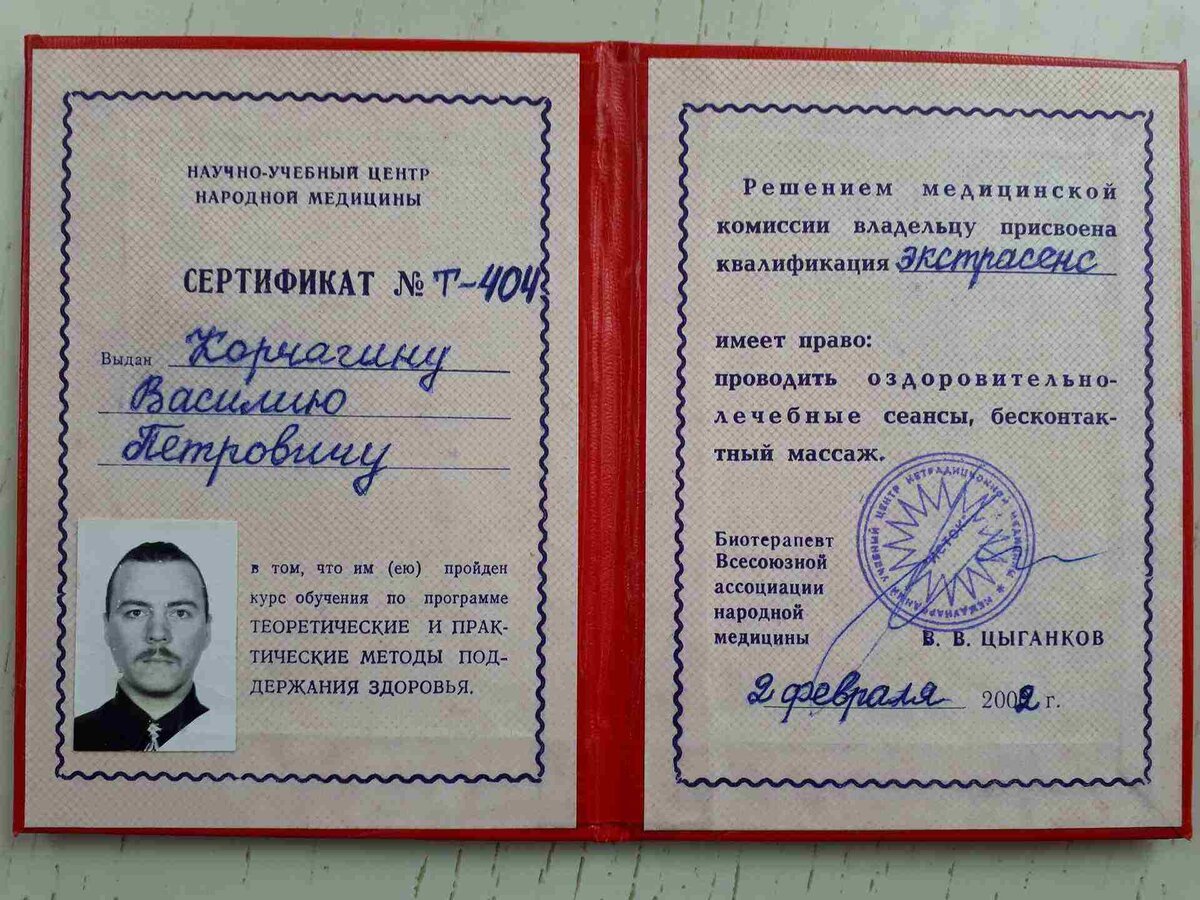 НАУЧНО-УЧЕБНЫЙ ЦЕНТР
НАРОДНОЙ МЕДИЦИНЫ
СЕРТИФИКАТ № Т-404
Выдан Корчагину
Василию
Петровичу
в том, что им (ею) пройден
курс обучения по программе
ТЕОРЕТИЧЕСКИЕ И ПРАК-
ТИЧЕСКИЕ МЕТОДЫ ПОД-
ДЕРЖАНИЯ ЗДОРОВЬЯ.
Решением медицинской
комиссии владельцу присвоена
квалификация экстрасенс
имеет право:
проводить оздоровительно-
лечебные сеансы, бесконтак-
тный массаж.
Биотерапевт
Всесоюзной
ассоциации
народной
медицины
В. В. ЦЫГАНКОВ
МЕЖДУНАРОДНЫЙ УЧЕБНЫЙ ЦЕНТР НЕТРАДИЦИОННОЙ МЕДИЦИНЫ
ИСТОК
2 февраля 2002 г.